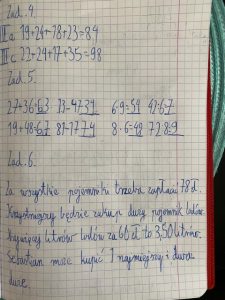 Zad. 4.
II a. 19+24+18+23=84
III c. 22+24+17+35=98
Zad. 5.
27+36=63 73-42=31 6·9=54 42:6=7
19+48=67 81-7=74 8·6=48 72:8=9
Zad. 6.
Za wszystkie pojemniki trzeba zapłacić 78 zł.
Korzystniejszy będzie zakup duży pojemnik lodów.
Najwięcej litrów lodów za 60 zł to 3,50 litrów.
Sebastian może kupić 1 najmniejszy i dwa
duże.